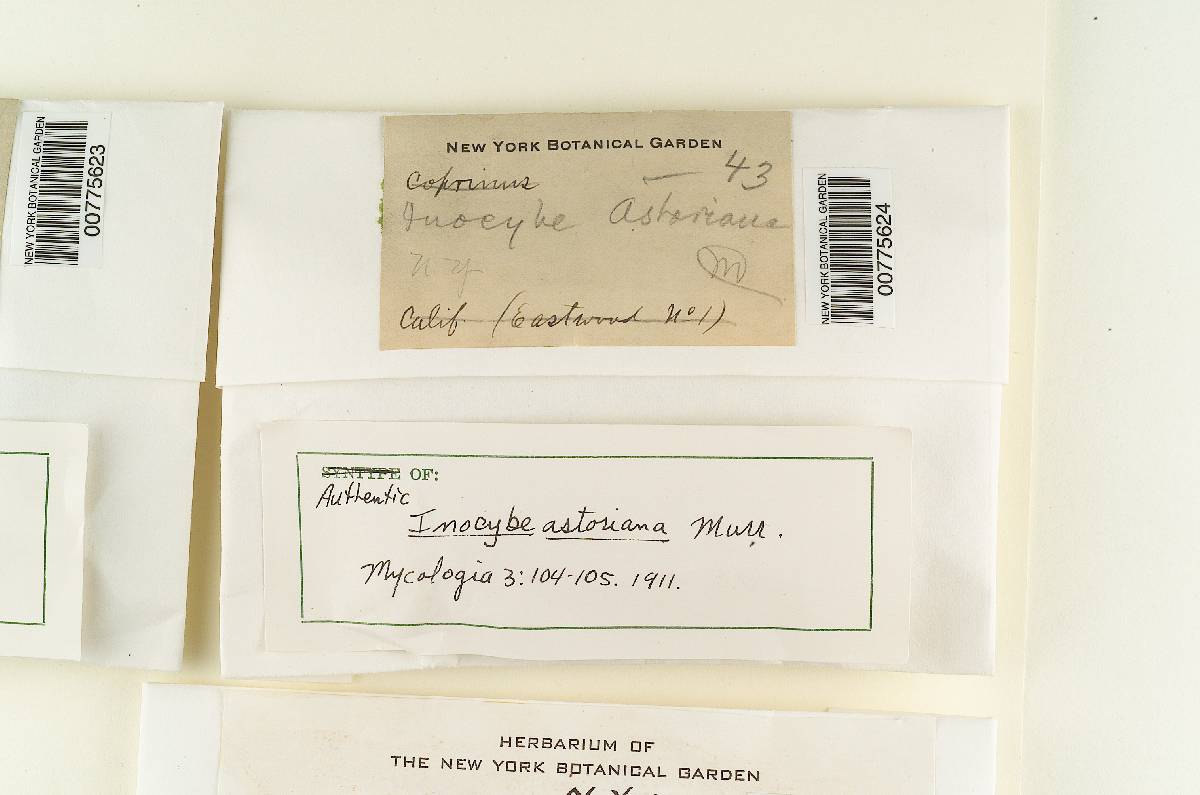 NEW YORK BOTANICAL GARDEN
00775623
NEW YORK BOTANICAL GARDEN
Coprinus — 43
Inocybe Astoriana
N. Y.
Calif (Eastwood No 1)
NEW YORK BOTANICAL GARDEN
00775624
SYNTYPE OF:
Authentic
Inocybe astoriana Murr.
Mycologia 3: 104-105. 1911.
HERBARIUM OF
THE NEW YORK BOTANICAL GARDEN